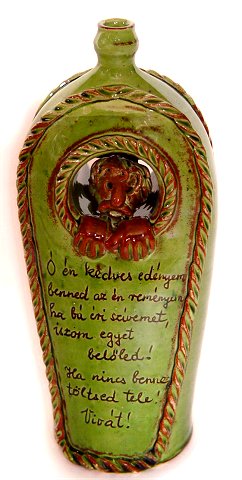 Ó én kedves edényem
benned az én reményem
ha bú éri szivemet,
iszom egyet
belőled!
Ha nincs benne
töltsed tele!
Vivát!